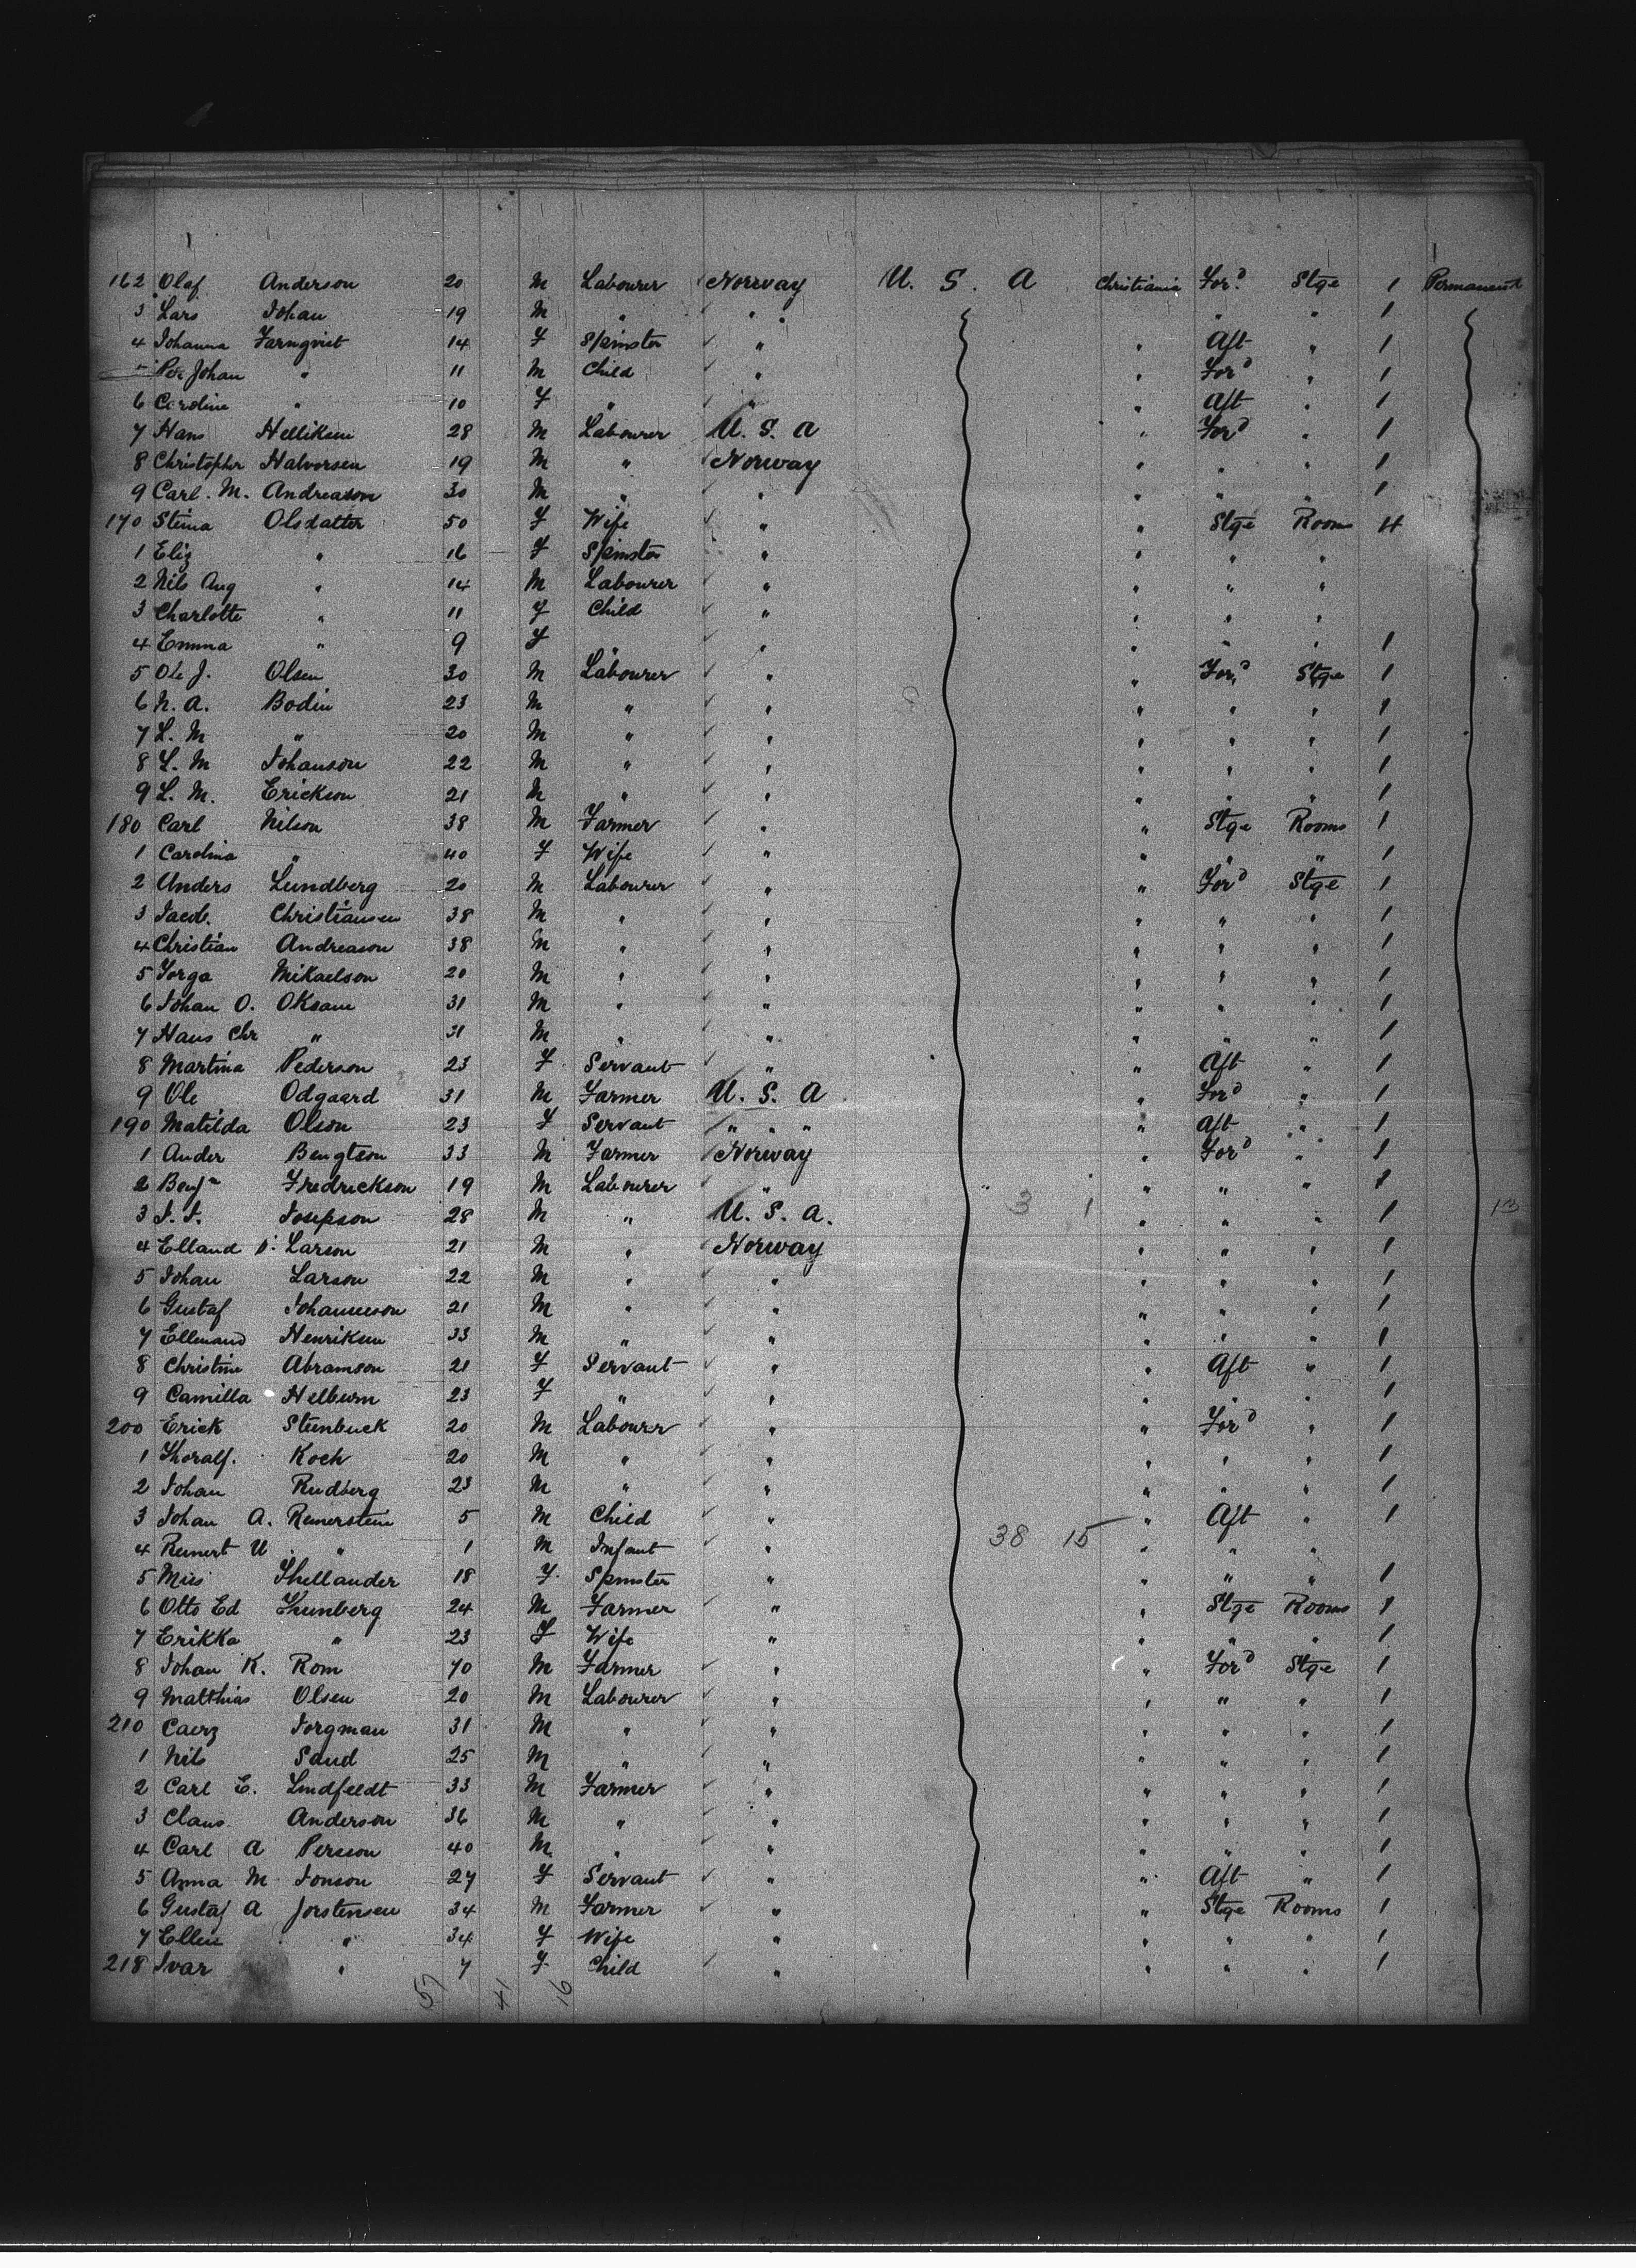 162 Olaf Anderson 20 M Labourer Norway U. S. A Christiania Ford Stge 1 Permanent
3 Lars Johan 19 M " " " " " 1
4 Johanna Farnqvist 14 F Spinster " " Aft " 1
Per Johan " 11 M Child " " Ford " 1
6 Caroline " 10 F " " " Aft " 1
7 Hans Helliksen 28 M Labourer U. S. A " Ford " 1
8 Christopher Halvorsen 19 M " Norway " " " 1
9 Carl. M. Andreason 30 M " " " " " 1
170 Stina Olsdatter 50 F Wife " " Stge Rooms 4
1 Eliz " 16 F Spinster " " " "
2 Nils Aug " 14 M Labourer " " " "
3 Charlotte " 11 F Child " " " "
4 Emma " 9 F " " " " " 1
5 Ole J. Olsen 30 M Labourer " " Ford Stge 1
6 N. A. Bodin 23 M " " " " " 1
7 L. M " 20 M " " " " " 1
8 L. M Johanson 22 M " " " " " 1
9 L. M. Erickson 21 M " " " " " 1
180 Carl Nilson 38 M Farmer " " Stge Rooms 1
1 Carolina " 40 F Wife " " " " 1
2 Anders Lundberg 20 M Labourer " " Ford Stge 1
3 Jacob. Christiansen 38 M " " " " " 1
4 Christian Andreason 38 M " " " " " 1
5 Mikaelson 20 M " " " " " 1
6 Johan O. Oksam 31 M " " " " " 1
7 Hans Chr " 31 M " " " " " 1
8 Martina Pederson 23 F Servant " " Aft " 1
9 Ole Odgaard 31 M Farmer U. S. A " Ford " 1
190 Matilda Olson 23 F Servant " " " " Aft " 1
1 Ander Bengtson 33 M Farmer Norway " Ford " 1
2 Benjn Fredrickson 19 M Labourer " " " " 1
3 J. J. Josepson 28 M " U. S. A. 3 1 " " " 1 13
4 Elland Larson 21 M " Norway " " " 1
5 Johan Larson 22 M " " " " " 1
6 Gustaf Johannson 21 M " " " " " 1
7 Henriksen 33 M " " " " " 1
8 Christine Abramson 21 F Servant " " Aft " 1
9 Camilla Helburn 23 F " " " " " 1
200 Erick Steinbuck 20 M Labourer " " Ford " 1
1 Thoralf. Koch 20 M " " " " " 1
2 Johan Rudberg 23 M " " " " " 1
3 Johan A. Reinerstein 5 M Child " " Aft " 1
4 Reinert U " 1 M Infant " 38 15 " " "
5 Miss Thellander 18 F Spinster " " " " 1
6 Otto Ed Thunberg 24 M Farmer " " Stge Rooms 1
7 Erikka " 23 F Wife " " " " 1
8 Johan K. Rom 70 M Farmer " " Ford Stge 1
9 Matthias Olsen 20 M Labourer " " " " 1
210 Jorgman 31 M " " " " " 1
1 Nils Saud 25 M " " " " " 1
2 Carl E. Lindfeldt 33 M Farmer " " " " 1
3 Claus Anderson 36 M " " " " " 1
4 Carl A Persson 40 M " " " " " 1
5 Anna M Jonson 27 F Servant " " Aft " 1
6 Gustaf A Jorstensen 34 M Farmer " " Stge Rooms 1
7 Ellen " 34 F Wife " " " " 1
218 Ivar " 7 F Child " " " " 1
57 41 16